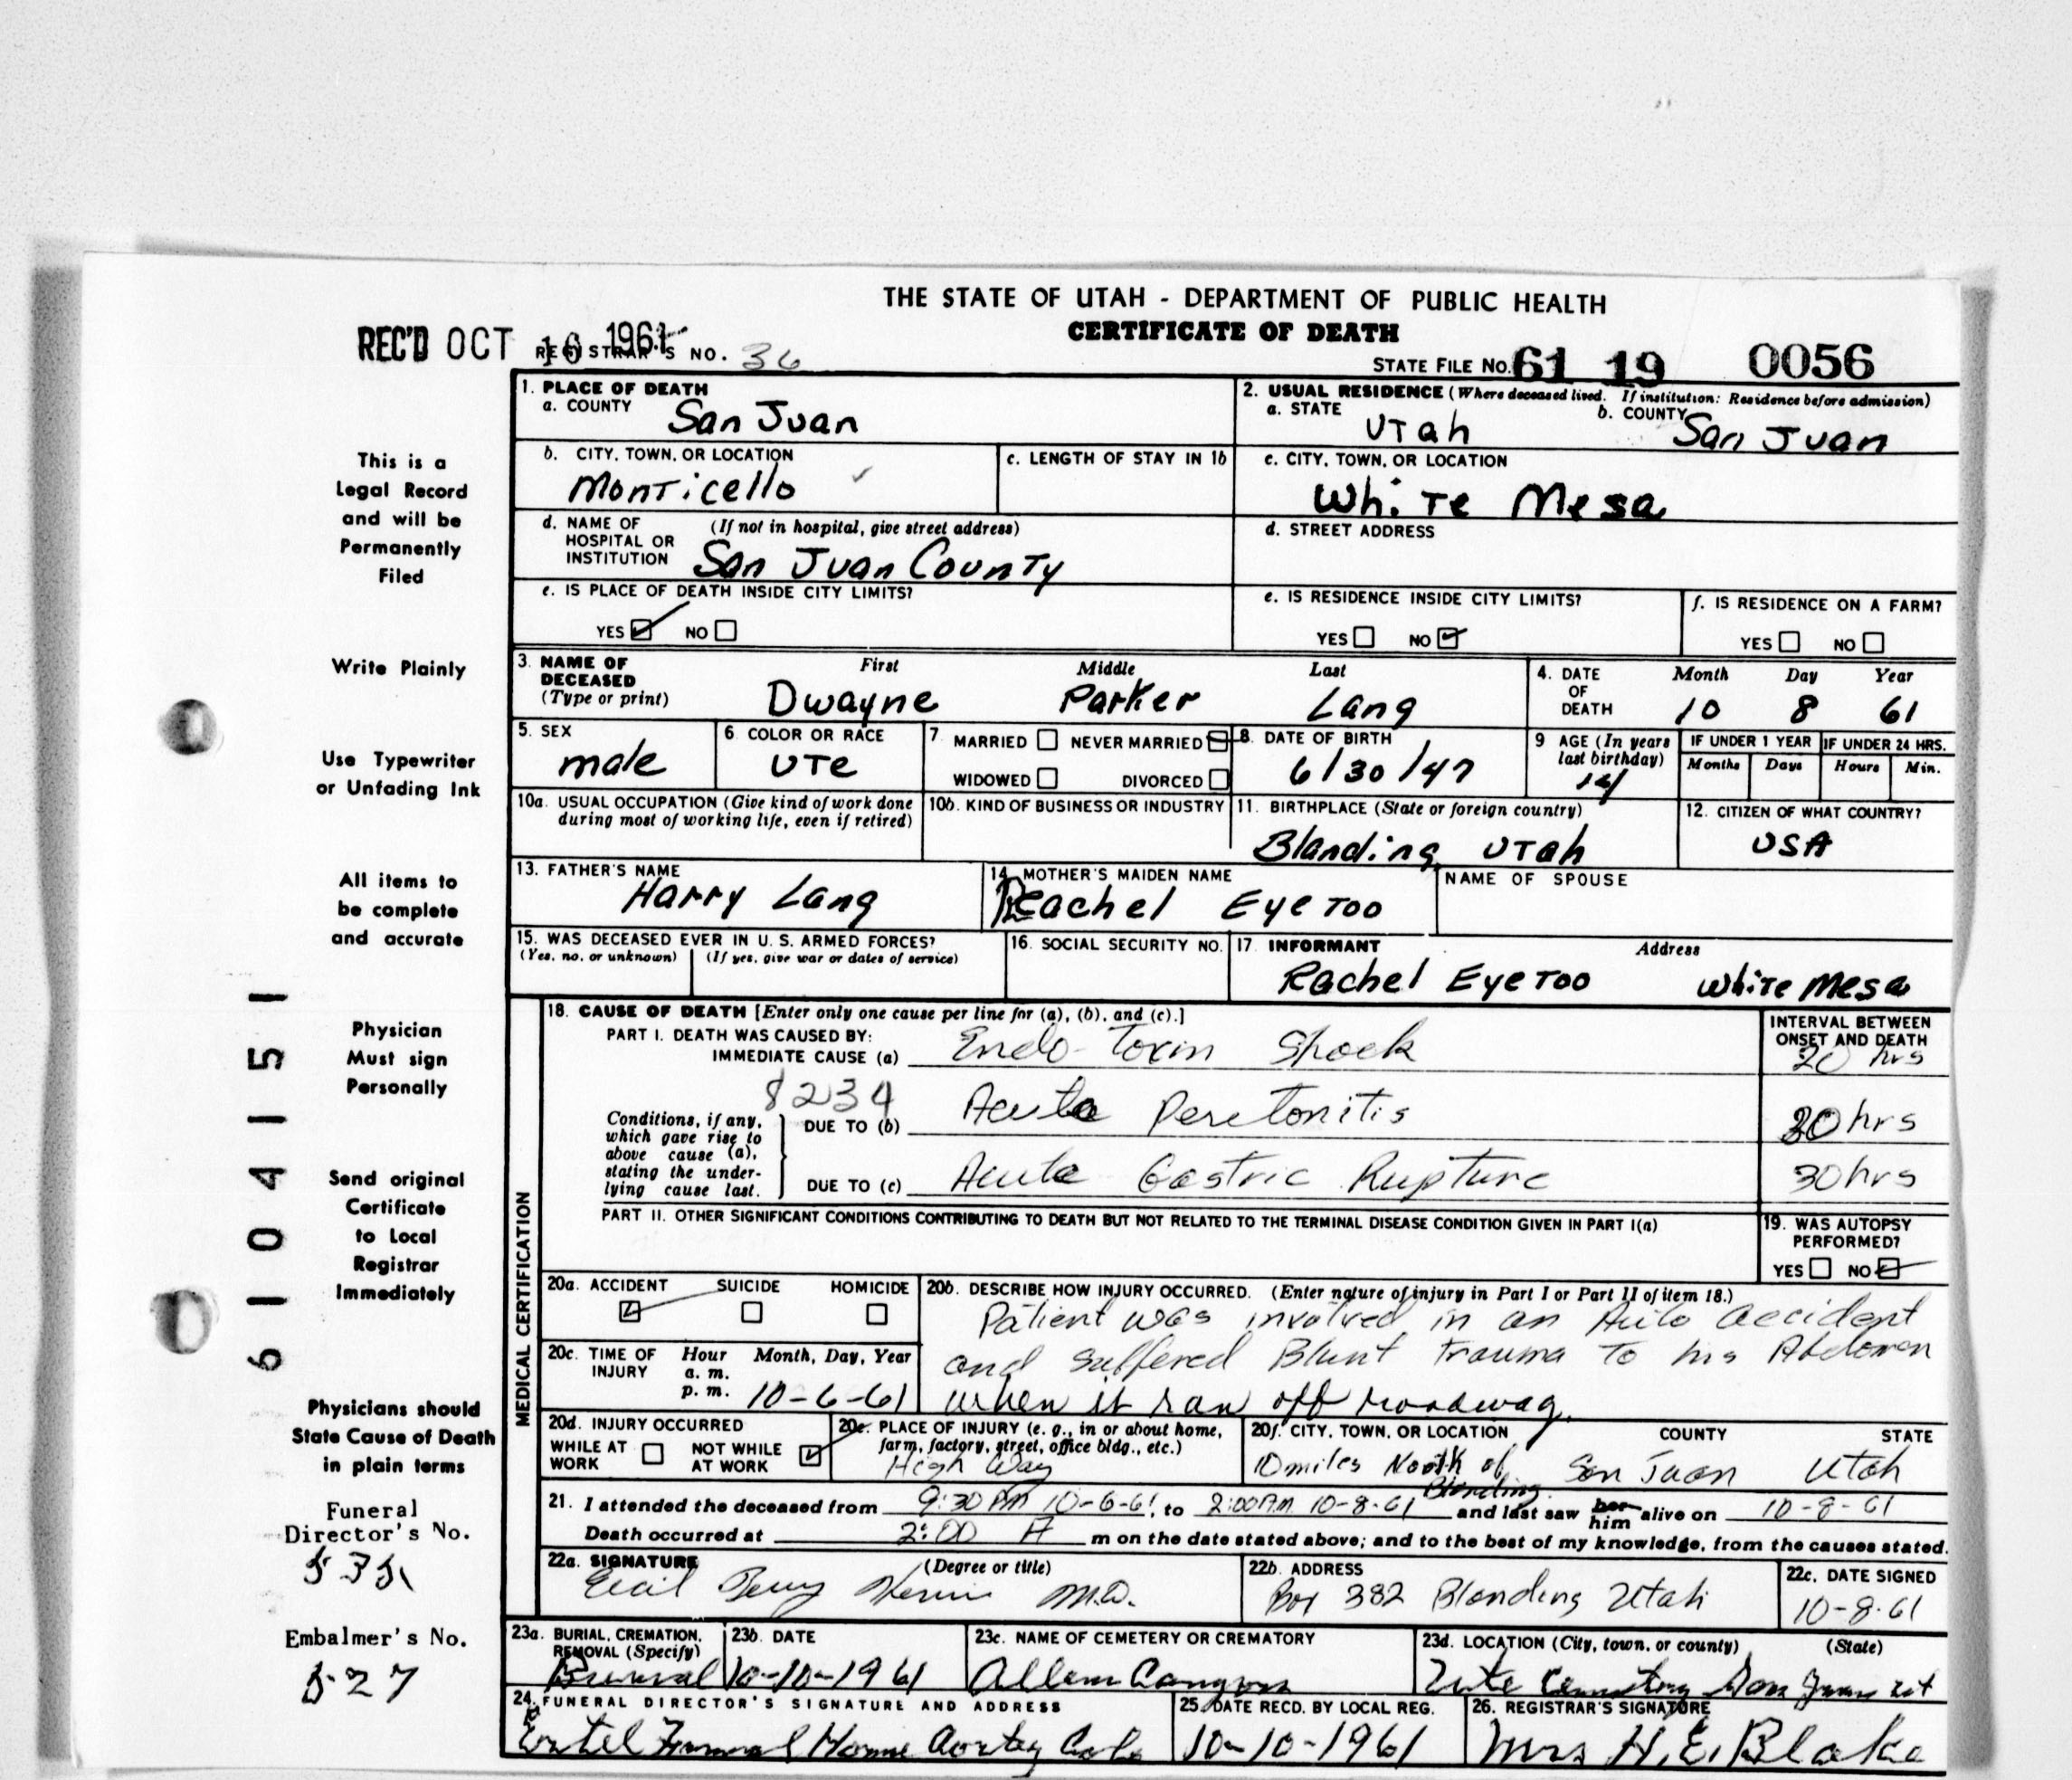 THE STATE OF UTAH - DEPARTMENT OF PUBLIC HEALTH
CERTIFICATE OF DEATH
REC'D OCT 16 1961
REGISTRAR'S NO. 36
STATE FILE NO. 61 19 0056
1. PLACE OF DEATH
a. COUNTY San Juan
2. USUAL RESIDENCE (Where deceased lived. If institution: Residence before admission)
a. STATE Utah b. COUNTY San Juan
b. CITY, TOWN, OR LOCATION Monticello
c. LENGTH OF STAY IN 1b
c. CITY, TOWN, OR LOCATION White Mesa
d. NAME OF HOSPITAL OR INSTITUTION (If not in hospital, give street address) San Juan County
d. STREET ADDRESS
e. IS PLACE OF DEATH INSIDE CITY LIMITS?
YES NO
e. IS RESIDENCE INSIDE CITY LIMITS?
YES NO
f. IS RESIDENCE ON A FARM?
YES NO
3. NAME OF DECEASED (Type or print)
First Middle Last
Dwayne Parker Lang
4. DATE OF DEATH
Month Day Year
10 8 61
5. SEX male
6. COLOR OR RACE Ute
7. MARRIED NEVER MARRIED
WIDOWED DIVORCED
8. DATE OF BIRTH 6/30/47
9 AGE (In years last birthday) 14
IF UNDER 1 YEAR IF UNDER 24 HRS.
Months Days Hours Min.
10a. USUAL OCCUPATION (Give kind of work done during most of working life, even if retired)
10b. KIND OF BUSINESS OR INDUSTRY
11. BIRTHPLACE (State or foreign country)
Blanding, Utah
12. CITIZEN OF WHAT COUNTRY?
USA
13. FATHER'S NAME
Harry Lang
14. MOTHER'S MAIDEN NAME
Rachel Eyetoo
NAME OF SPOUSE
15. WAS DECEASED EVER IN U. S. ARMED FORCES?
(Yes, no, or unknown) (If yes, give war or dates of service)
16. SOCIAL SECURITY NO.
17. INFORMANT Address
Rachel Eyetoo White Mesa
MEDICAL CERTIFICATION
18. CAUSE OF DEATH [Enter only one cause per line for (a), (b), and (c).]
PART I. DEATH WAS CAUSED BY:
IMMEDIATE CAUSE (a) Endo-toxin Shock
INTERVAL BETWEEN ONSET AND DEATH
20 hrs
8234
Conditions, if any, which gave rise to above cause (a), stating the underlying cause last.
DUE TO (b) Acute Peretonitis 30 hrs
DUE TO (c) Acute Gastric Rupture 30 hrs
PART II. OTHER SIGNIFICANT CONDITIONS CONTRIBUTING TO DEATH BUT NOT RELATED TO THE TERMINAL DISEASE CONDITION GIVEN IN PART I(a)
19. WAS AUTOPSY PERFORMED?
YES NO
20a. ACCIDENT SUICIDE HOMICIDE
20b. DESCRIBE HOW INJURY OCCURRED. (Enter nature of injury in Part I or Part II of item 18.)
Patient was involved in an Auto accident
and suffered Blunt trauma to his Abdomen
when it ran off roadway.
20c. TIME OF INJURY Hour Month, Day, Year
a. m.
p. m. 10-6-61
20d. INJURY OCCURRED
WHILE AT WORK NOT WHILE AT WORK
20e. PLACE OF INJURY (e. g., in or about home, farm, factory, street, office bldg., etc.)
High Way
20f. CITY, TOWN, OR LOCATION COUNTY STATE
10 miles North of Blanding San Juan Utah
21. I attended the deceased from 9:30 PM 10-6-61, to 2:00 A.M. 10-8-61 and last saw her him alive on 10-8-61
Death occurred at 2:00 A m on the date stated above; and to the best of my knowledge, from the causes stated.
22a. SIGNATURE (Degree or title)
M.D.
22b. ADDRESS
Box 382 Blanding Utah
22c. DATE SIGNED
10-8-61
23a. BURIAL, CREMATION, REMOVAL (Specify)
23b. DATE
10-10-1961
23c. NAME OF CEMETERY OR CREMATORY
Allen Canyon
23d. LOCATION (City, town, or county) (State)
Ute Cemetery San Juan Ut
24. FUNERAL DIRECTOR'S SIGNATURE AND ADDRESS
Ertel Funeral Home Cortez Colo
25. DATE RECD. BY LOCAL REG.
10-10-1961
26. REGISTRAR'S SIGNATURE
Mrs H. E. Blake
This is a
Legal Record
and will be
Permanently
Filed
Write Plainly
Use Typewriter
or Unfading Ink
All items to
be complete
and accurate
Physician
Must sign
Personally
Send original
Certificate
to Local
Registrar
Immediately
Physicians should
State Cause of Death
in plain terms
Funeral
Director's No.
Embalmer's No.
527
6104151